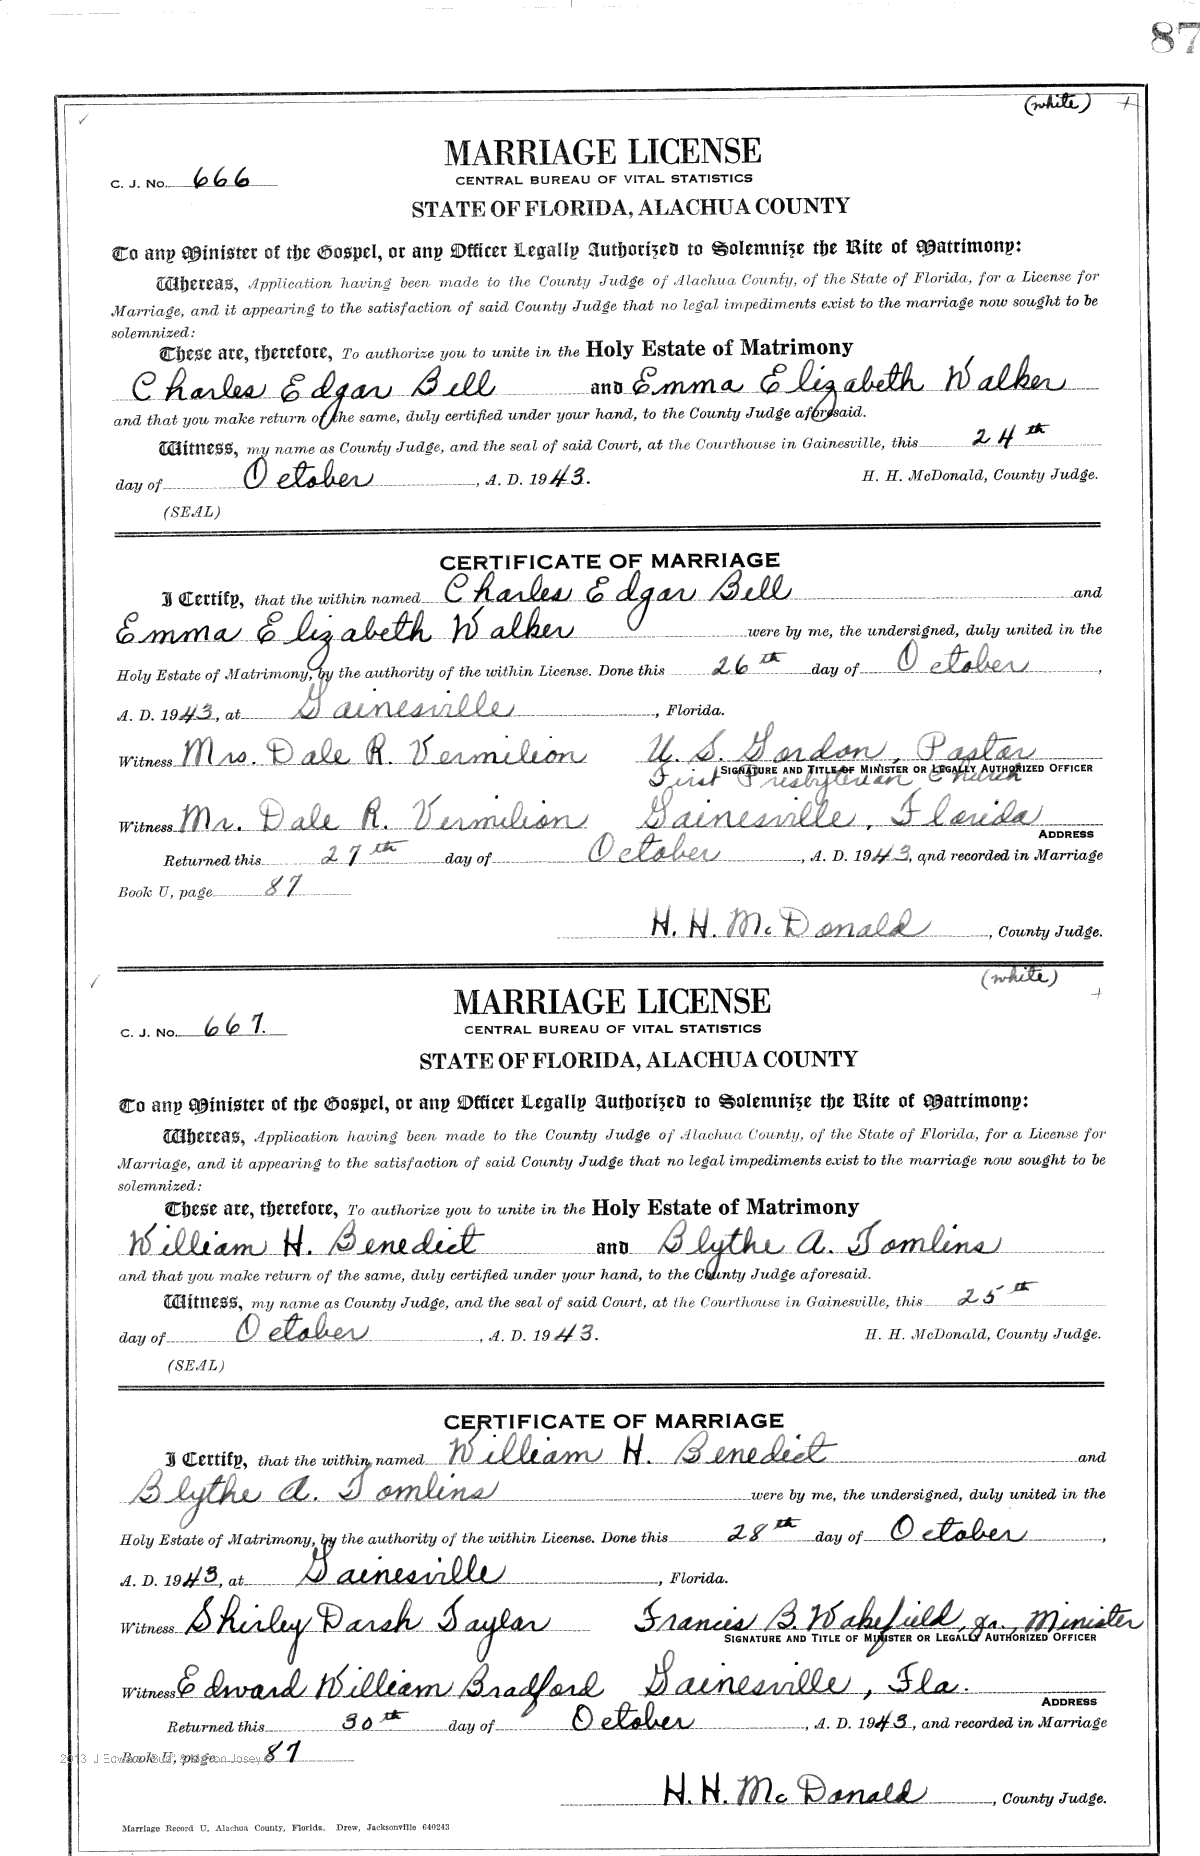 87
(white) +
MARRIAGE LICENSE
C. J. No. 666 CENTRAL BUREAU OF VITAL STATISTICS
STATE OF FLORIDA, ALACHUA COUNTY
To any Minister of the Gospel, or any Officer Legally Authorized to Solemnize the Rite of Matrimony:
Whereas, Application having been made to the County Judge of Alachua County, of the State of Florida, for a License for
Marriage, and it appearing to the satisfaction of said County Judge that no legal impediments exist to the marriage now sought to be
solemnized:
These are, therefore, To authorize you to unite in the Holy Estate of Matrimony
Charles Edgar Bell and Emma Elizabeth Walker
and that you make return of the same, duly certified under your hand, to the County Judge aforesaid.
Witness, my name as County Judge, and the seal of said Court, at the Courthouse in Gainesville, this 24th
day of October, A. D. 1943. H. H. McDonald, County Judge.
(SEAL)
CERTIFICATE OF MARRIAGE
I Certify, that the within named Charles Edgar Bell and
Emma Elizabeth Walker were by me, the undersigned, duly united in the
Holy Estate of Matrimony, by the authority of the within License. Done this 26th day of October,
A. D. 1943, at Gainesville, Florida.
Witness Mrs. Dale R. Vermilion U. S. Gordon, Pastor
SIGNATURE AND TITLE OF MINISTER OR LEGALLY AUTHORIZED OFFICER
First Presbyterian Church
Witness Mr. Dale R. Vermilion Gainesville, Florida
ADDRESS
Returned this 27th day of October, A. D. 1943, and recorded in Marriage
Book U, page 87
H. H. McDonald, County Judge.
(white)
+
MARRIAGE LICENSE
C. J. No. 667. CENTRAL BUREAU OF VITAL STATISTICS
STATE OF FLORIDA, ALACHUA COUNTY
To any Minister of the Gospel, or any Officer Legally Authorized to Solemnize the Rite of Matrimony:
Whereas, Application having been made to the County Judge of Alachua County, of the State of Florida, for a License for
Marriage, and it appearing to the satisfaction of said County Judge that no legal impediments exist to the marriage now sought to be
solemnized:
These are, therefore, To authorize you to unite in the Holy Estate of Matrimony
William H. Benedict and Blythe A. Tomlins
and that you make return of the same, duly certified under your hand, to the County Judge aforesaid.
Witness, my name as County Judge, and the seal of said Court, at the Courthouse in Gainesville, this 25th
day of October, A. D. 1943. H. H. McDonald, County Judge.
(SEAL)
CERTIFICATE OF MARRIAGE
I Certify, that the within named William H. Benedict and
Blythe A. Tomlins were by me, the undersigned, duly united in the
Holy Estate of Matrimony, by the authority of the within License. Done this 28th day of October,
A. D. 1943, at Gainesville, Florida.
Witness Shirley Darsh Taylor Francis B. Wakefield, Jr., Minister
SIGNATURE AND TITLE OF MINISTER OR LEGALLY AUTHORIZED OFFICER
Witness Edward William Bradford Gainesville, Fla.
ADDRESS
Returned this 30th day of October, A. D. 1943, and recorded in Marriage
Book U, page 87
2013 J Josey
H. H. McDonald, County Judge.
Marriage Record U, Alachua County, Florida. Drew, Jacksonville 640243